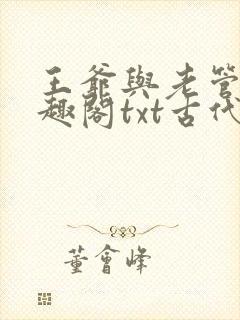 王爺與老管
趣閣txt古代
董會峰